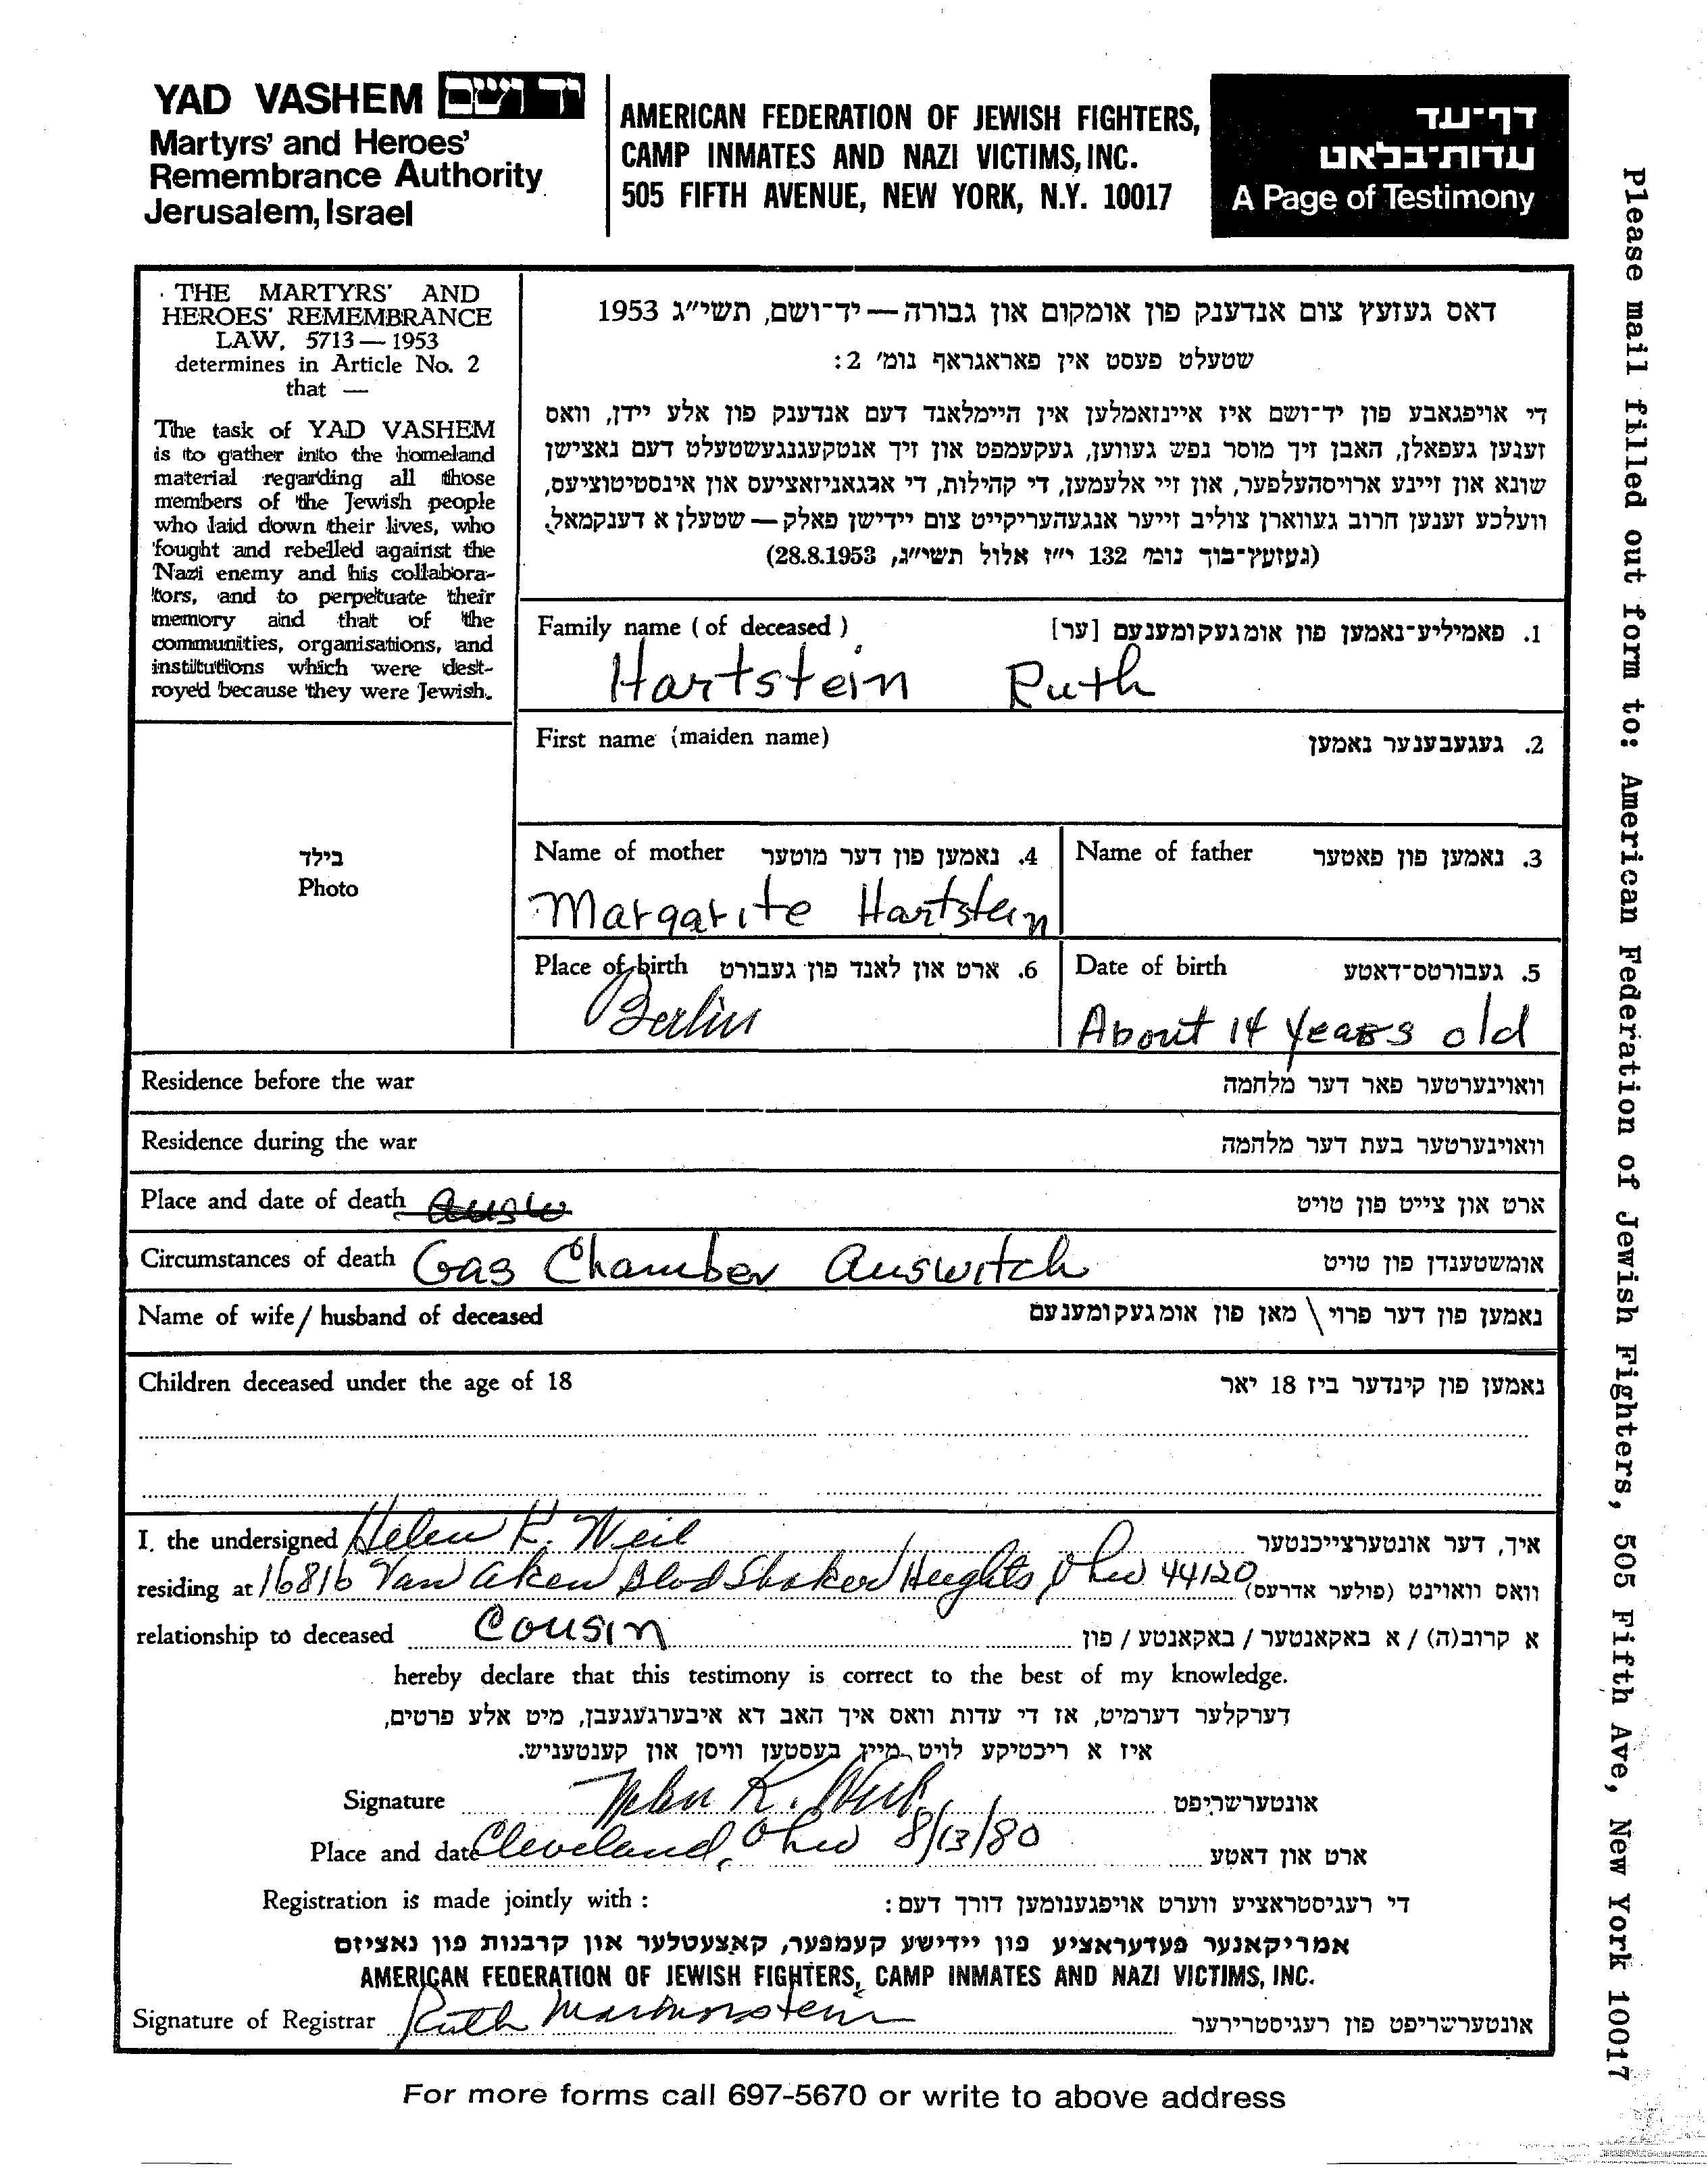 YAD VASHEM יד ושם
Martyrs' and Heroes'
Remembrance Authority
Jerusalem, Israel
AMERICAN FEDERATION OF JEWISH FIGHTERS,
CAMP INMATES AND NAZI VICTIMS, INC.
505 FIFTH AVENUE, NEW YORK, N.Y. 10017
דף־עד
עדות־בלאט
A Page of Testimony
Please mail filled out form to: American Federation of Jewish Fighters, 505 Fifth Ave, New York 10017
THE MARTYRS' AND
HEROES' REMEMBRANCE
LAW, 5713 — 1953
determines in Article No. 2
that —
The task of YAD VASHEM
is to gather into the homeland
material regarding all those
members of the Jewish people
who laid down their lives, who
fought and rebelled against the
Nazi enemy and his collabora-
tors, and to perpetuate their
memory and that of the
communities, organisations, and
institutions which were dest-
royed because they were Jewish.
דאס געזעץ צום אנדענק פון אומקום און גבורה — יד־ושם, תשי״ג 1953
שטעלט פעסט אין פאראגראף נומ׳ 2:
די אויפגאבע פון יד־ושם איז איינזאמלען אין היימלאנד דעם אנדענק פון אלע יידן, וואס
זענען געפאלן, האבן זיך מוסר נפש געווען, געקעמפט און זיך אנטקעגנגעשטעלט דעם נאצישן
שונא און זיינע ארויסהעלפער, און זיי אלעמען, די קהילות, די ארגאניזאציעס און אינסטיטוציעס,
וועלכע זענען חרוב געווארן צוליב זייער אנגעהעריקייט צום יידישן פאלק — שטעלן א דענקמאל.
(געזעץ־בוך נומ׳ 132 י״ז אלול תשי״ג, 28.8.1953)
Family name (of deceased) 1. פאמיליע־נאמען פון אומגעקומענעם [ער]
Hartstein Ruth
First name (maiden name) 2. געגעבענער נאמען
בילד
Photo
Name of mother 4. נאמען פון דער מוטער
Margarite Hartstein
Name of father 3. נאמען פון פאטער
Place of birth 6. ארט און לאנד פון געבורט
Berlin
Date of birth 5. געבורטס־דאטע
About 14 years old
Residence before the war וואוינערטער פאר דער מלחמה
Residence during the war וואוינערטער בעת דער מלחמה
Place and date of death Ausw ארט און צייט פון טויט
Circumstances of death Gas Chamber Auswitch אומשטענדן פון טויט
Name of wife / husband of deceased נאמען פון דער פרוי \ מאן פון אומגעקומענעם
Children deceased under the age of 18 נאמען פון קינדער ביז 18 יאר
I, the undersigned Helen K. Weil איך, דער אונטערצייכנטער
residing at 16816 Van Aken Blvd Shaker Heights, Ohio 44120 וואס וואוינט (פולער אדרעס)
relationship to deceased Cousin א קרוב(ה) / א באקאנטער / באקאנטע / פון
hereby declare that this testimony is correct to the best of my knowledge.
דערקלער דערמיט, אז די עדות וואס איך האב דא איבערגעגעבן, מיט אלע פרטים,
איז א ריכטיקע לויט מיין בעסטען וויסן און קענטעניש.
Signature Helen K. Weil אונטערשריפט
Place and date Cleveland, Ohio 8/13/80 ארט און דאטע
Registration is made jointly with : די רעגיסטראציע ווערט אויפגענומען דורך דעם:
אמריקאנער פעדעראציע פון יידישע קעמפער, קאצעטלער און קרבנות פון נאציזם
AMERICAN FEDERATION OF JEWISH FIGHTERS, CAMP INMATES AND NAZI VICTIMS, INC.
Signature of Registrar Ruth אונטערשריפט פון רעגיסטרירער
For more forms call 697-5670 or write to above address